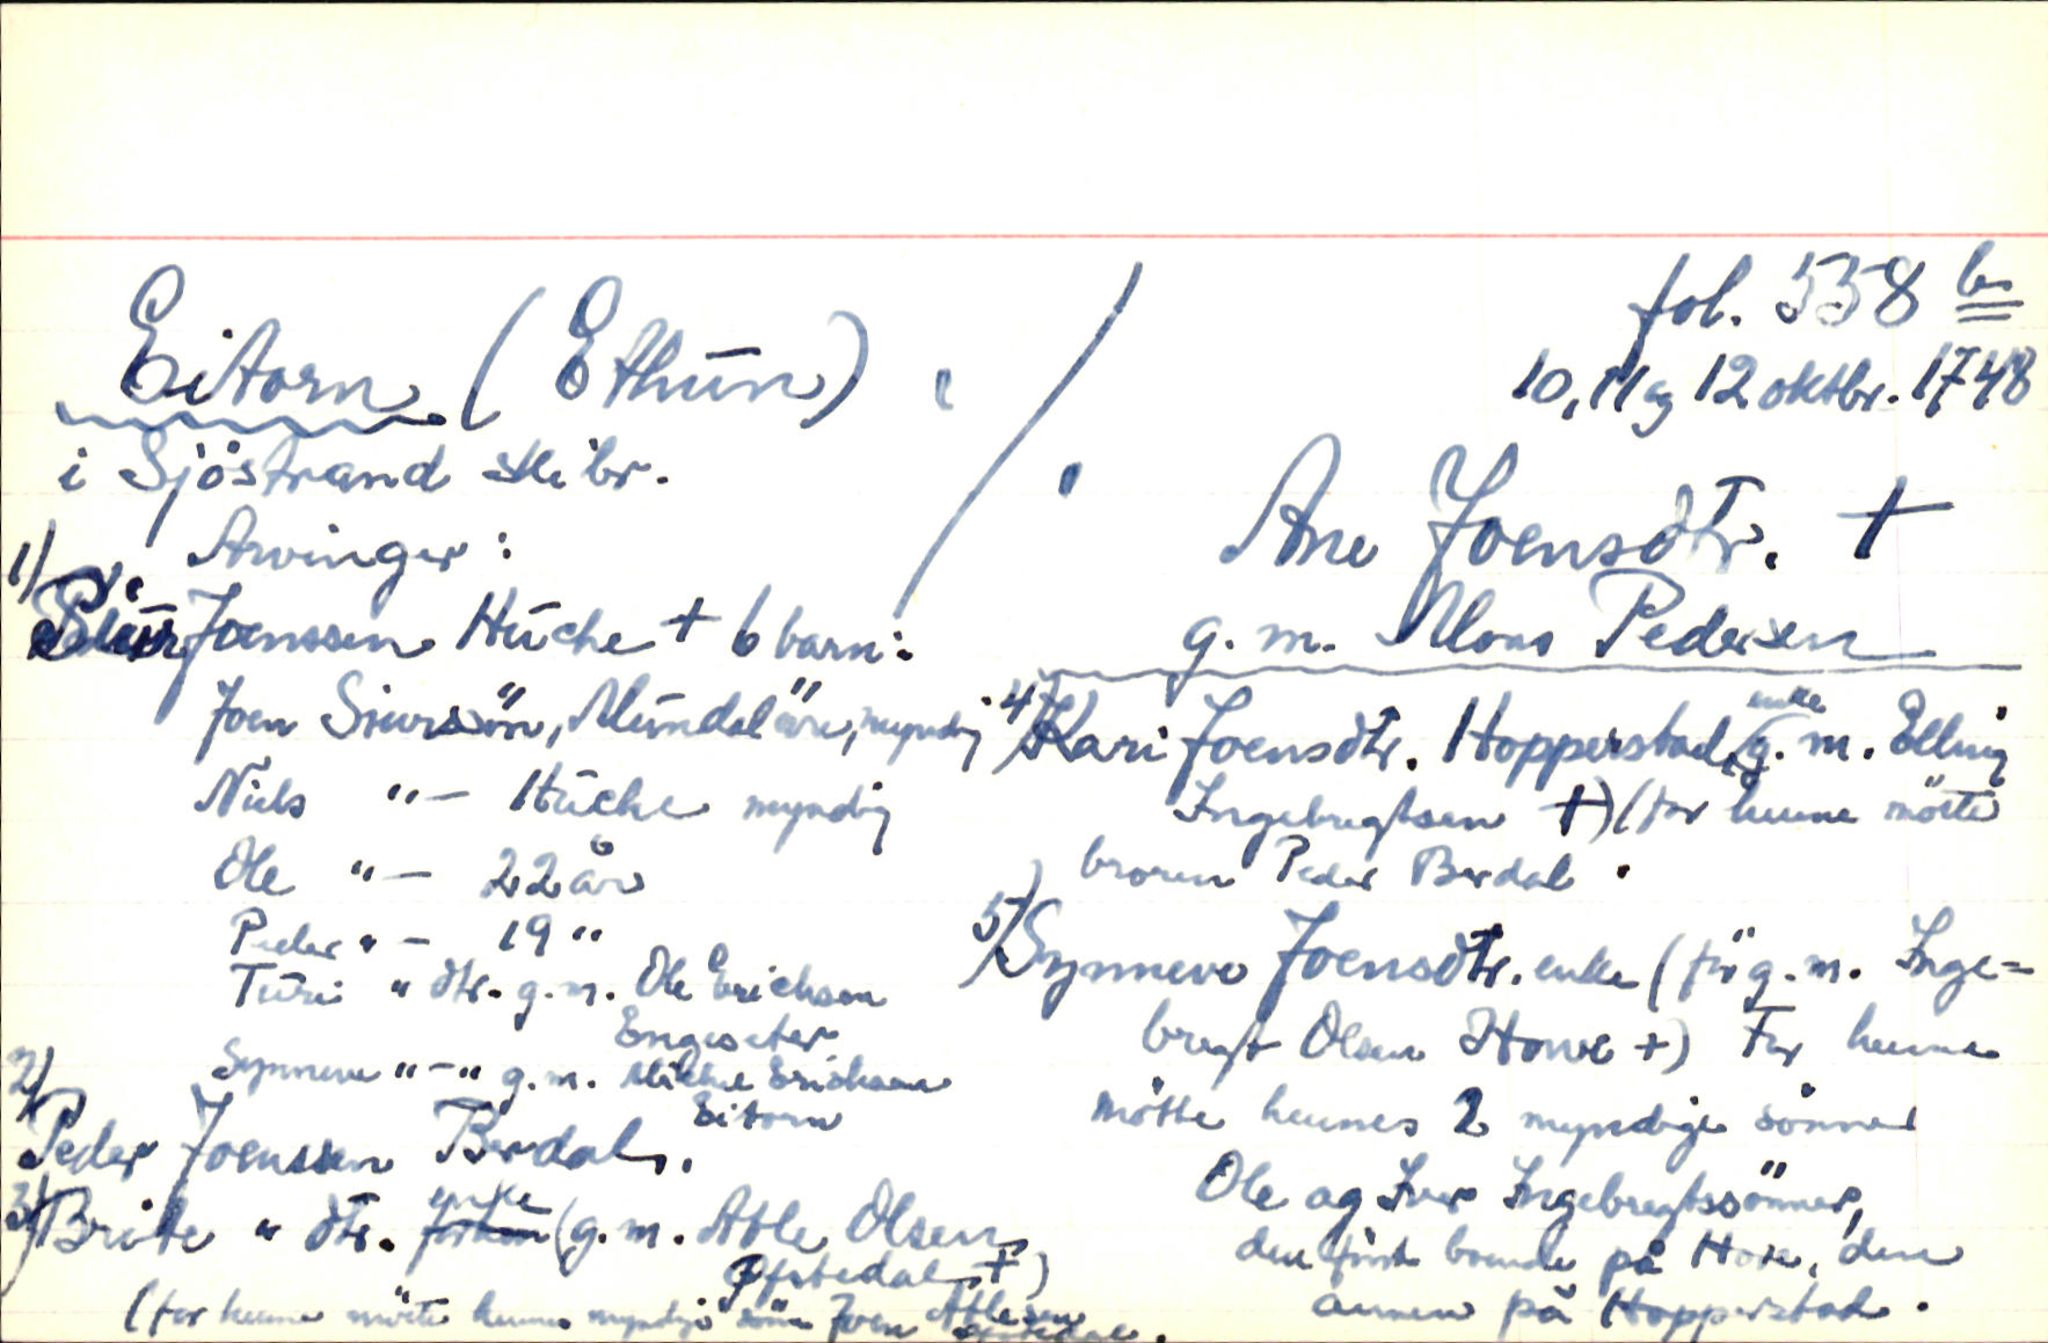 fol. 558 b
10, 11 og 12 oktbr. 1748
Eitorn (Ethun)
i Sjöstrand skibr.
Ane Joensdtr. +
g. m. Mons Pedersen
Arvinger:
1) Siur Joenssen Hücke + 6 barn:
Joen Siursön, Mündal öire, myndig
Niels "– Hücke myndig
Ole "– 22 år
Peder "– 19 "
Turi " dtr. g. m. Ole Erichsen
Engeseter
Synneve "–" g. m. Mikkel Erichsen
Eitorn
2) Peder Joenssen Berdal.
3) Brite " dtr. enke (g. m. Atle Olsen
Ofstedal +)
(for henne mötte hennes myndige sön Joen Atlesen
4) Kari Joensdtr. Hopperstad, enke (g. m. Elling
Ingebregtsen +) (for henne mötte
broren Peder Berdal.
5) Synneve Joensdtr. enke (för g. m. Inge=
bregt Olsen Howe +) For henne
mötte hennes 2 myndige sönner
Ole og Iver Ingebregtssönner,
den först boende på Hove, den
annen på Hopperstad.